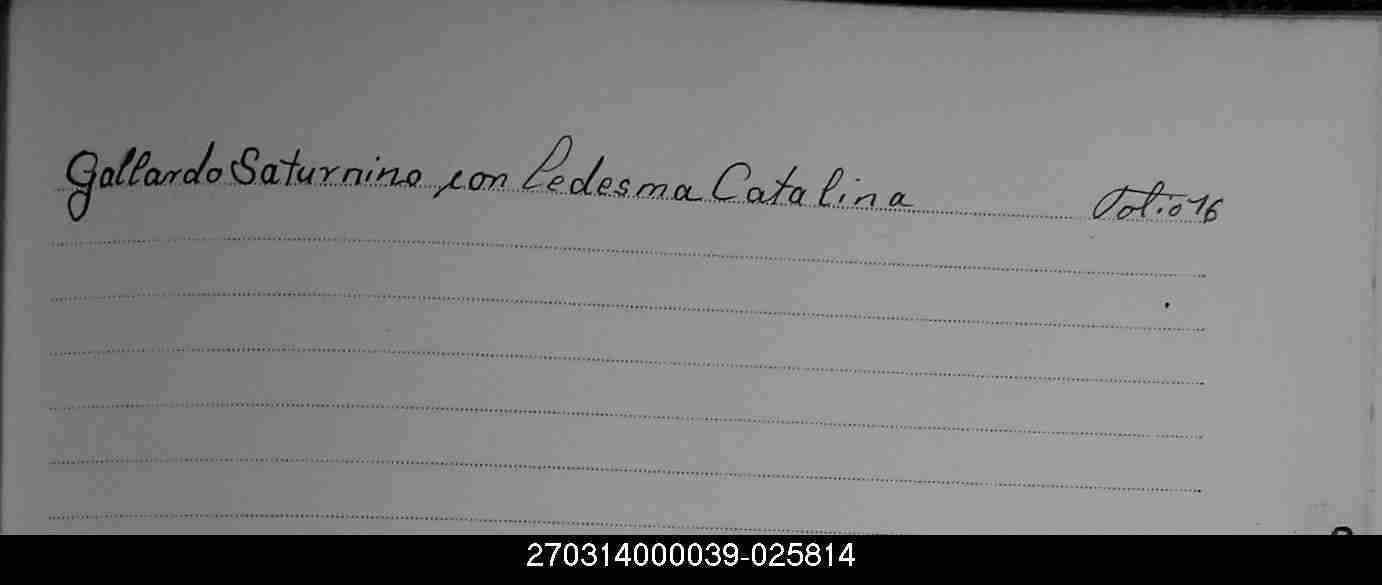 Gallardo Saturnino con Ledesma Catalina Folio 16
270314000039-025814